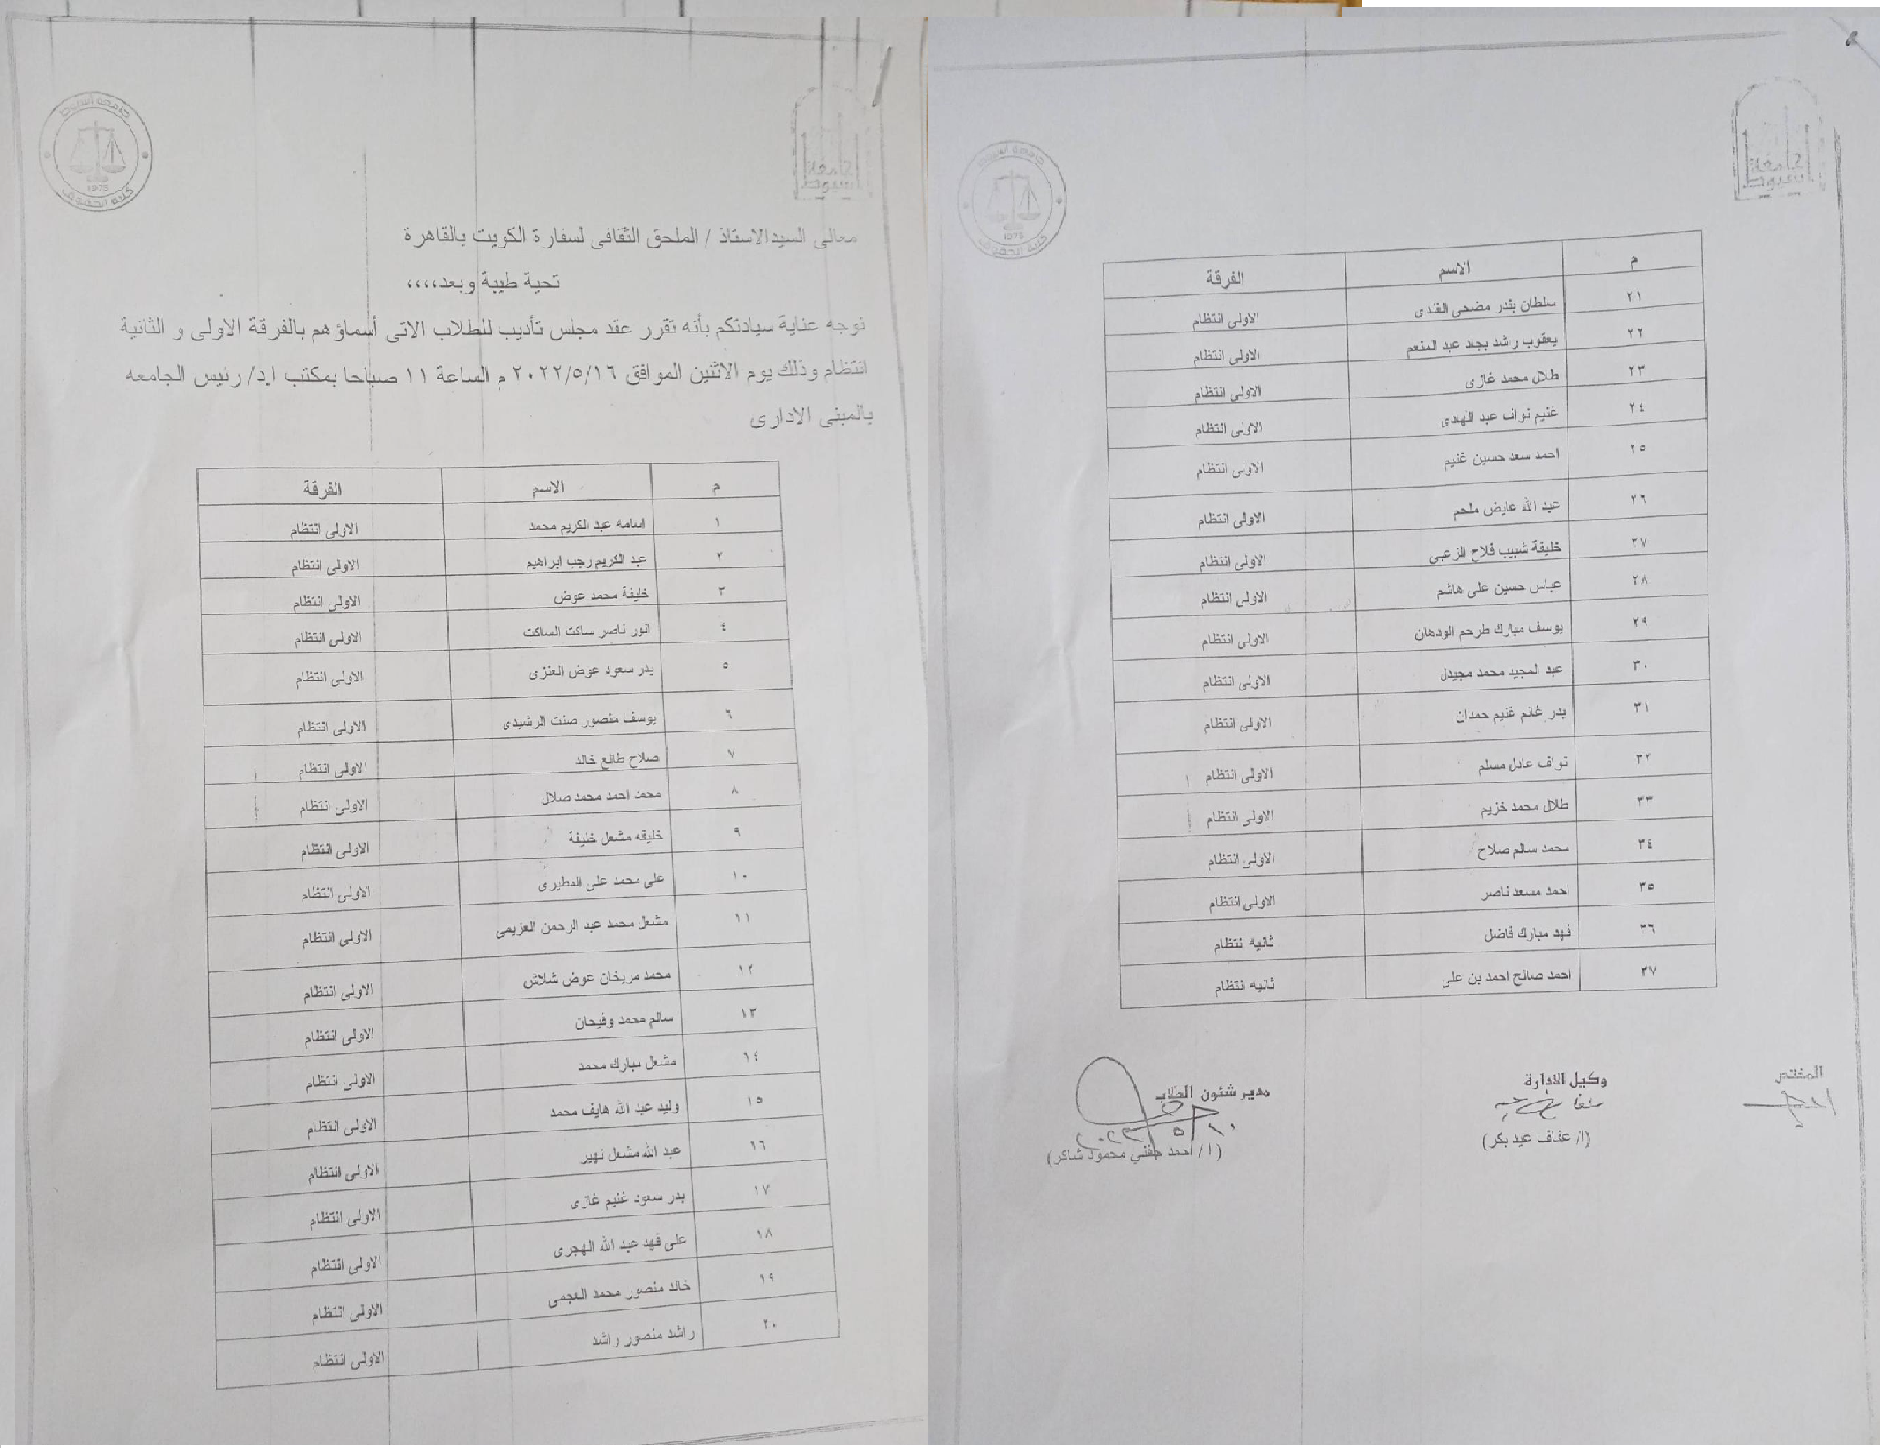 جامعة أسيوط
كلية الحقوق
1975
جامعة
أسيوط
معالى السيد الاستاذ / الملحق الثقافى لسفارة الكويت بالقاهرة
تحية طيبة وبعد،،،،
نوجه عناية سيادتكم بأنه تقرر عقد مجلس تأديب للطلاب الاتى أسماؤهم بالفرقة الاولى و الثانية
انتظام وذلك يوم الاثنين الموافق ٢٠٢٢/٥/١٦ م الساعة ١١ صباحا بمكتب ا.د/ رئيس الجامعه
بالمبنى الادارى
م الاسم الفرقة
١ اسامه عبد الكريم محمد الاولى انتظام
٢ عبد الكريم رجب ابراهيم الاولى انتظام
٣ خليفة محمد عوض الاولى انتظام
٤ انور ناصر ساكت الساكت الاولى انتظام
٥ بدر سعود عوض العنزى الاولى انتظام
٦ يوسف منصور صنت الرشيدى الاولى انتظام
٧ صلاح طالع خالد الاولى انتظام
٨ محمد احمد محمد صلال الاولى انتظام
٩ خليفه مشعل خليفة الاولى انتظام
١٠ على محمد على المطيرى الاولى انتظام
١١ مشعل محمد عبد الرحمن العزيمى الاولى انتظام
١٢ محمد مريخان عوض شلاش الاولى انتظام
١٣ سالم محمد وفيحان الاولى انتظام
١٤ مشعل مبارك محمد الاولى انتظام
١٥ وليد عبد الله هايف محمد الاولى انتظام
١٦ عبد الله مشعل نهير الاولى انتظام
١٧ بدر سعود غنيم غازى الاولى انتظام
١٨ على فهد عبد الله الهجرى الاولى انتظام
١٩ خالد منصور محمد العجمى الاولى انتظام
٢٠ راشد منصور راشد الاولى انتظام
جامعة أسيوط
كلية الحقوق
1975
جامعة
أسيوط
م الاسم الفرقة
٢١ سلطان بندر مضحى الاولى انتظام
٢٢ يعقوب راشد عبد المنعم الاولى انتظام
٢٣ طلال محمد غازى الاولى انتظام
٢٤ غنيم نواف عبد الهدى الاولى انتظام
٢٥ احمد سعد حسين غنيم الاولى انتظام
٢٦ عبد الله عايض ملحم الاولى انتظام
٢٧ خليفة شبيب فلاح الزعبى الاولى انتظام
٢٨ عباس حسين على هاشم الاولى انتظام
٢٩ يوسف مبارك طرحم الودهان الاولى انتظام
٣٠ عبد المجيد محمد مجيدل الاولى انتظام
٣١ بدر غانم غنيم حمدان الاولى انتظام
٣٢ نواف عادل مسلم الاولى انتظام
٣٣ طلال محمد خزيم الاولى انتظام
٣٤ محمد سالم صلاح الاولى انتظام
٣٥ احمد مسعد ناصر الاولى انتظام
٣٦ فهد مبارك فاضل ثانيه نتظام
٣٧ احمد صالح احمد بن على ثانيه نتظام
المختص وكيل الادارة مدير شئون الطلاب
(ا/ عفاف عيد بكر) (ا/ احمد حفني محمود شاكر)